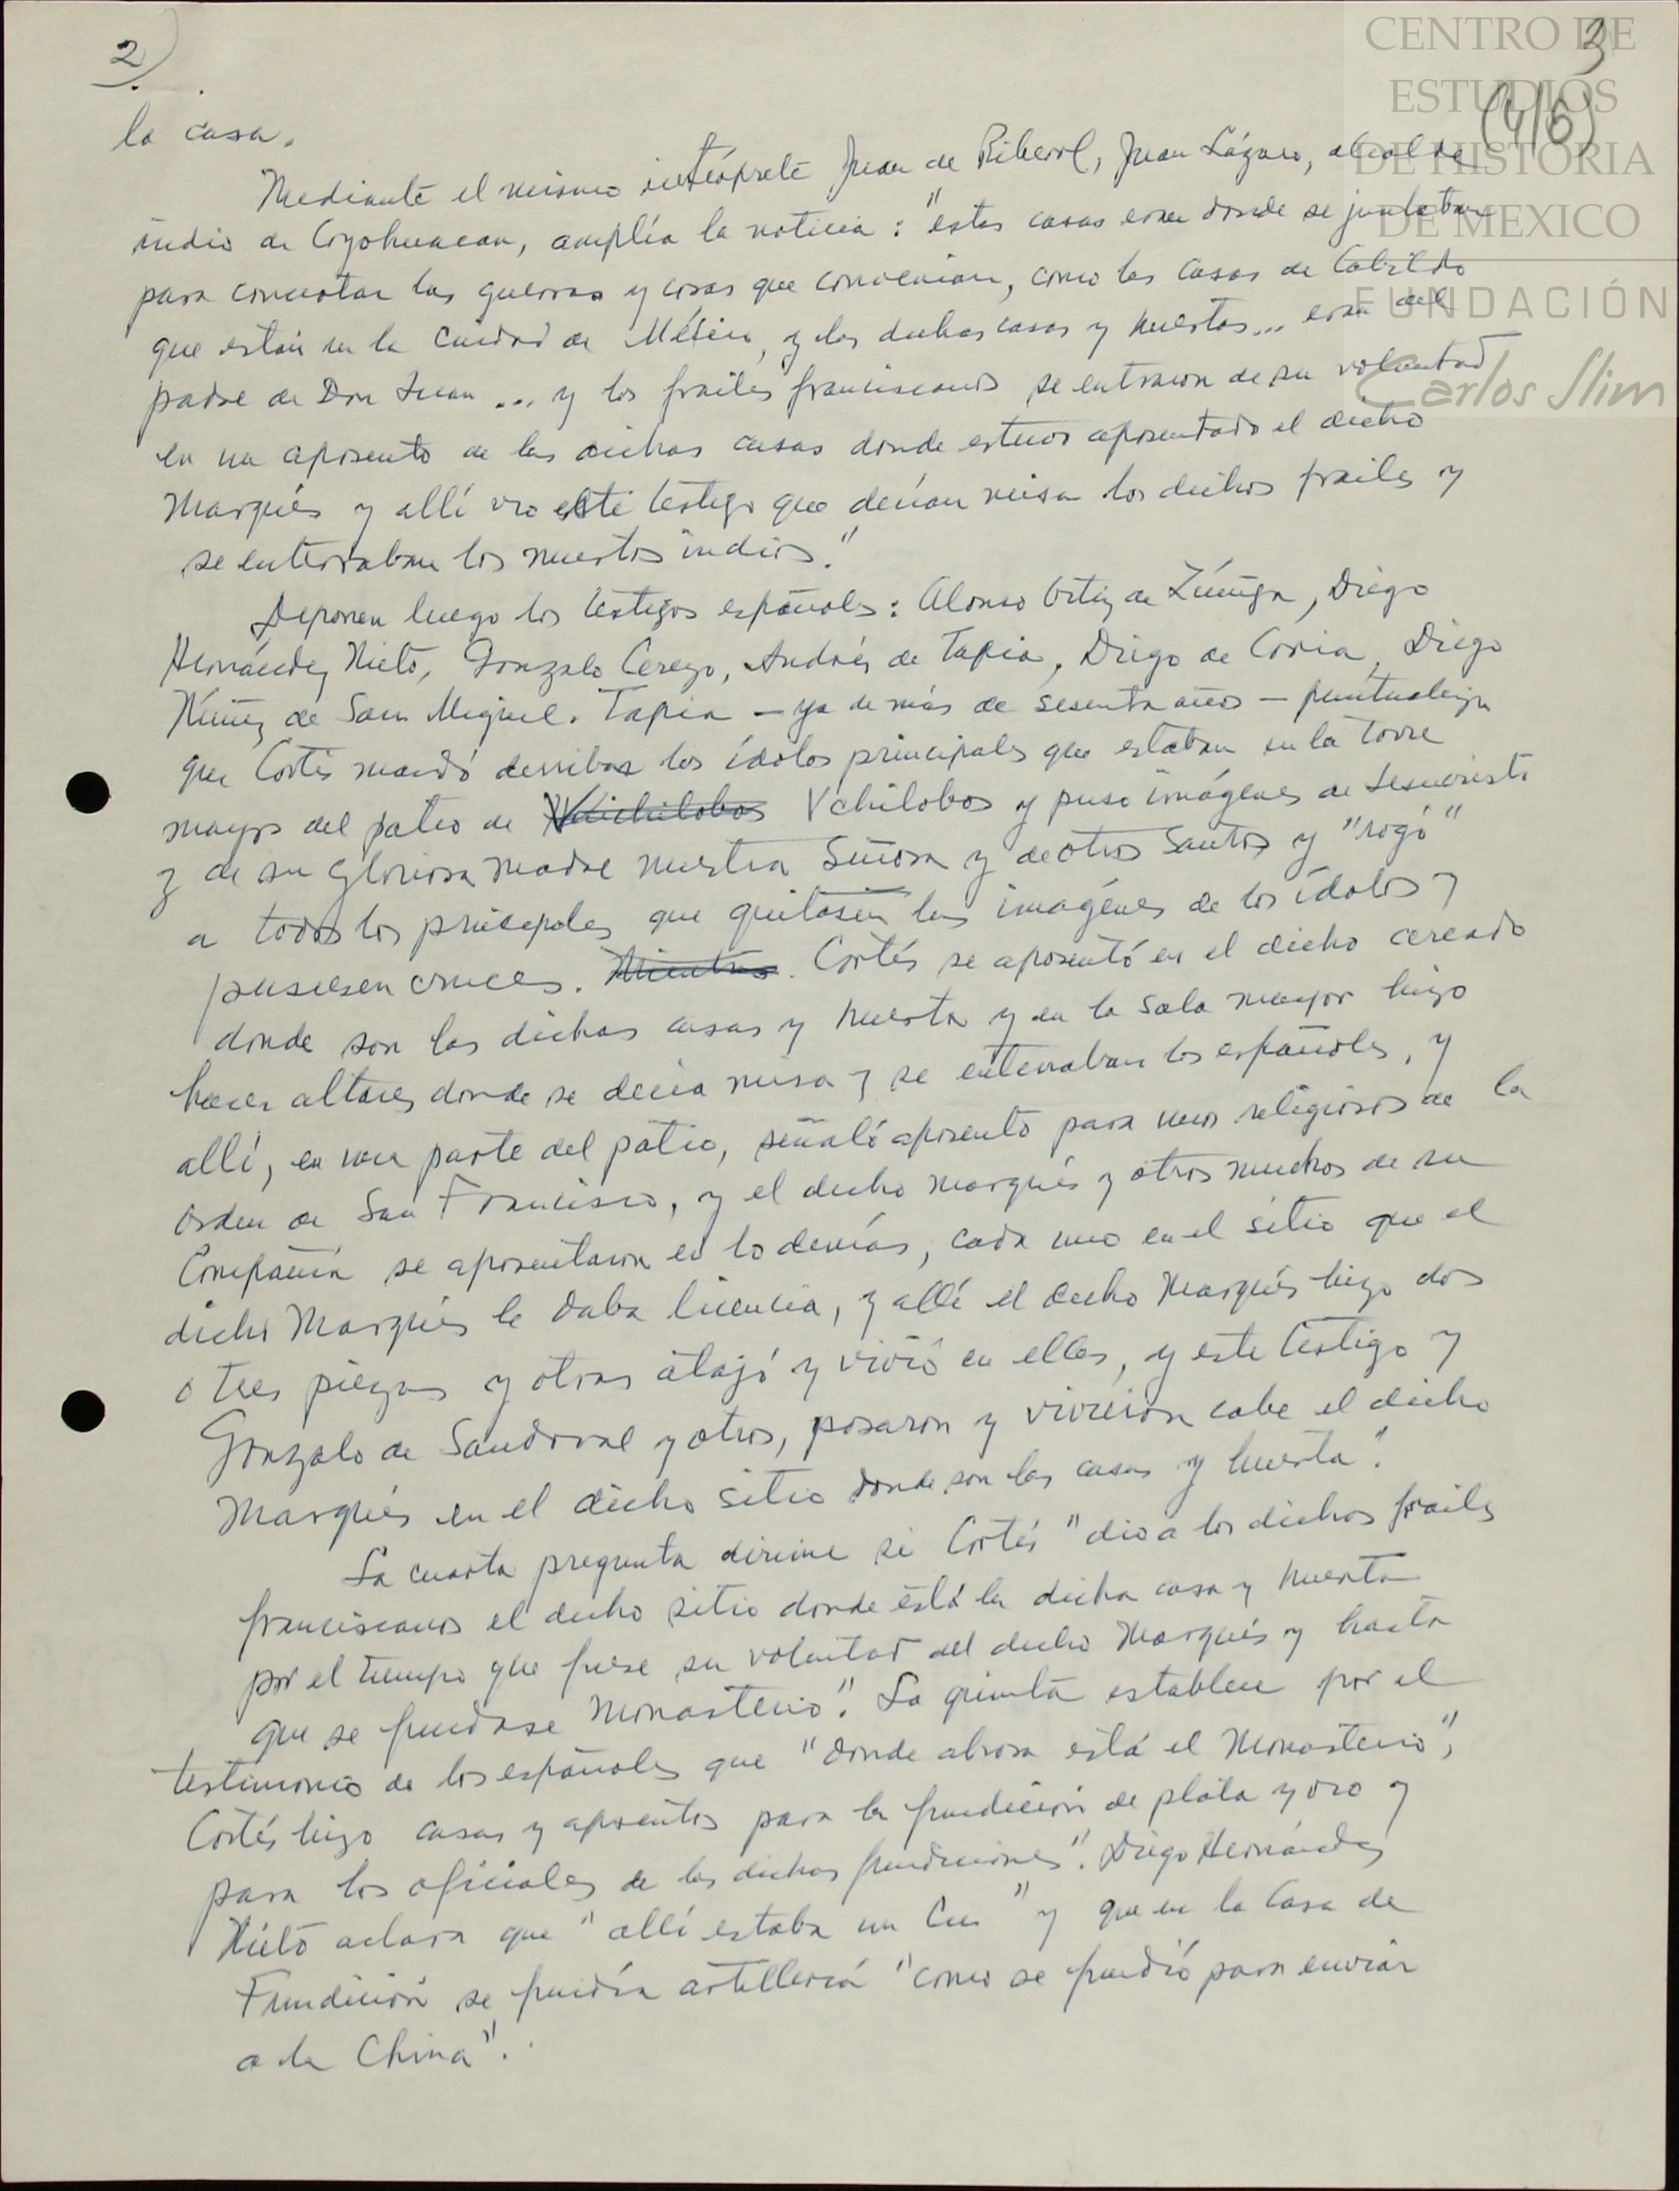 2)
3
(4/6)
CENTRO DE
ESTUDIOS
DE HISTORIA
DE MEXICO
FUNDACIÓN
Carlos Slim
la casa.
Mediante el mismo intérprete Juan de Riberol, Juan Lázaro, alcalde
indio de Coyohuacan, amplía la noticia: "estas casas eran donde se juntaban
para concertar las guerras y cosas que convenían, como las Casas de Cabildo
que están en la Ciudad de México, y las dichas casas y huertas... eran del
padre de Don Juan... y los frailes franciscanos se entraron de su voluntad
en un aposento de las dichas casas donde estuvo aposentado el dicho
Marqués y allí vio este testigo que decían misa los dichos frailes y
se enterraban los muertos indios."
Deponen luego los testigos españoles: Alonso Ortiz de Zúñiga, Diego
Hernández Nieto, Gonzalo Cerezo, Andrés de Tapia, Diego de Coria, Diego
Núñez de San Miguel. Tapia — ya de más de sesenta años — puntualiza
que Cortés mandó derribar los ídolos principales que estaban en la torre
mayor del patio de Vchilobos y puso imágenes de Jesucristo
y de su gloriosa madre nuestra Señora y de otros Santos y "rogó"
a todos los principales que quitasen las imágenes de los ídolos y
pusiesen cruces. Cortés se aposentó en el dicho cercado
donde son las dichas casas y huerta y en la sala mayor hizo
hacer altares donde se decía misa y se enterraban los españoles, y
allí, en una parte del patio, señaló aposento para unos religiosos de la
Orden de San Francisco, y el dicho marqués y otros muchos de su
Compañía se aposentaron en lo demás, cada uno en el sitio que el
dicho Marqués le daba licencia, y allí el dicho Marqués hizo dos
o tres piezas y otras atajó y vivió en ellas, y este testigo y
Gonzalo de Sandoval y otros, posaron y vivieron cabe el dicho
Marqués en el dicho sitio donde son las casas y huerta".
La cuarta pregunta dirime si Cortés "dio a los dichos frailes
franciscanos el dicho sitio donde está la dicha casa y huerta
por el tiempo que fuese su voluntad del dicho Marqués y hasta
que se fundase Monasterio". La quinta establece por el
testimonio de los españoles que "donde ahora está el Monasterio",
Cortés hizo casas y aposentos para la fundición de plata y oro y
para los oficiales de las dichas fundiciones". Diego Hernández
Nieto aclara que "allí estaba un Cu" y que en la Casa de
Fundición se fundía artillería "como se fundió para enviar
a la China".